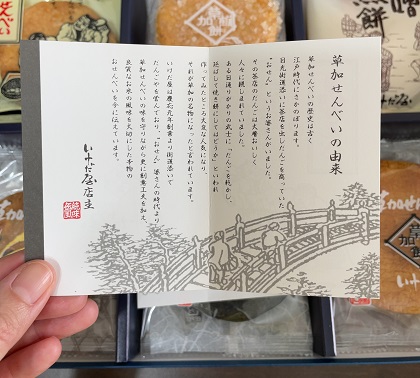 草加せんべいの由来
草加せんべいの歴史は古く
江戸時代にさかのぼります。
日光街道沿いに茶店を出しだんごを商っていた
"おせん"というお婆さんがいました。
その茶店のだんごは大層おいしく
人々に親しまれていました。
ある日通りがかりの武士に「だんごを乾かし、
延ばして焼き餅にしてはどうか」といわれ
作ってみたところ大変な人気になり、
それが草加の名物になったと言われています。
いけだ屋は慶応元年創業より街道沿いで
だんごやを営んでおり、"おせん"婆さんの時代より
草加せんべいの味を守りながら更に創意工夫を加え、
良質なお米の風味を大切にした本物の
おせんべいを今に伝えています。
いけだ屋 店主
草加
煎餅